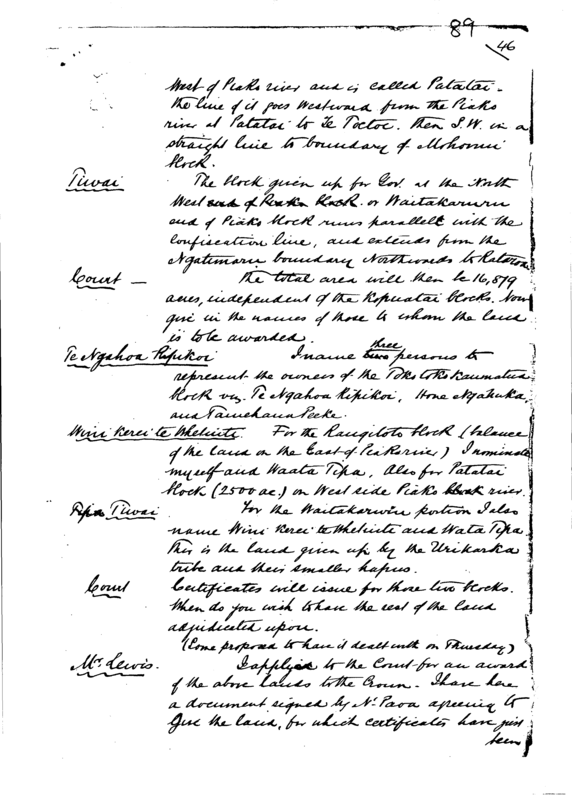 89
46
West of Piako river and is called Patatai.
The line of it goes Westward from the Piako
river at Patatai to Te Toetoe. then S.W. in a
straight line to boundary of
block.
Tiwai The block given up for Gov. at the North
West end of Piako block or Waitakaruru
end of Piako block runs parallell with the
Confiscation line, and extends from the
Ngatimaru boundary Northwards to
Court — The total area will then be 16,879
acres, independent of the Kopuatai blocks. Now
give in the names of those to whom the land
is to be awarded.
Te Ngahoa Ripikoi I name two three persons to
represent the owners of the
block viz. Te Ngahoa Ripikoi, Hone Ngahuka,
and Tamehana Peeke.
Wini Kerei te Whetuiti. For the Rangitoto block (balance
of the land on the East of Piako river) I nominate
myself and Waata Tipa, Also for Patatai
block (2500 ac.) on West side Piako block river.
Tipa Tiwai For the Waitakaruru portion I also
name Wini Kerei te Whetuiti and Wata Tipa.
This is the land given up by the Urikaraka
tribe and their smaller hapus.
Court Certificates will issue for those two blocks.
When do you wish to have the rest of the land
adjudicated upon.
(Some proposed to have it dealt with on Thursday)
Mr. Lewis. I applyied to the Court for an award
of the above lands to the Crown. I have here
a document signed by N. Paoa agreeing to
Give the land, for which certificates have just
been